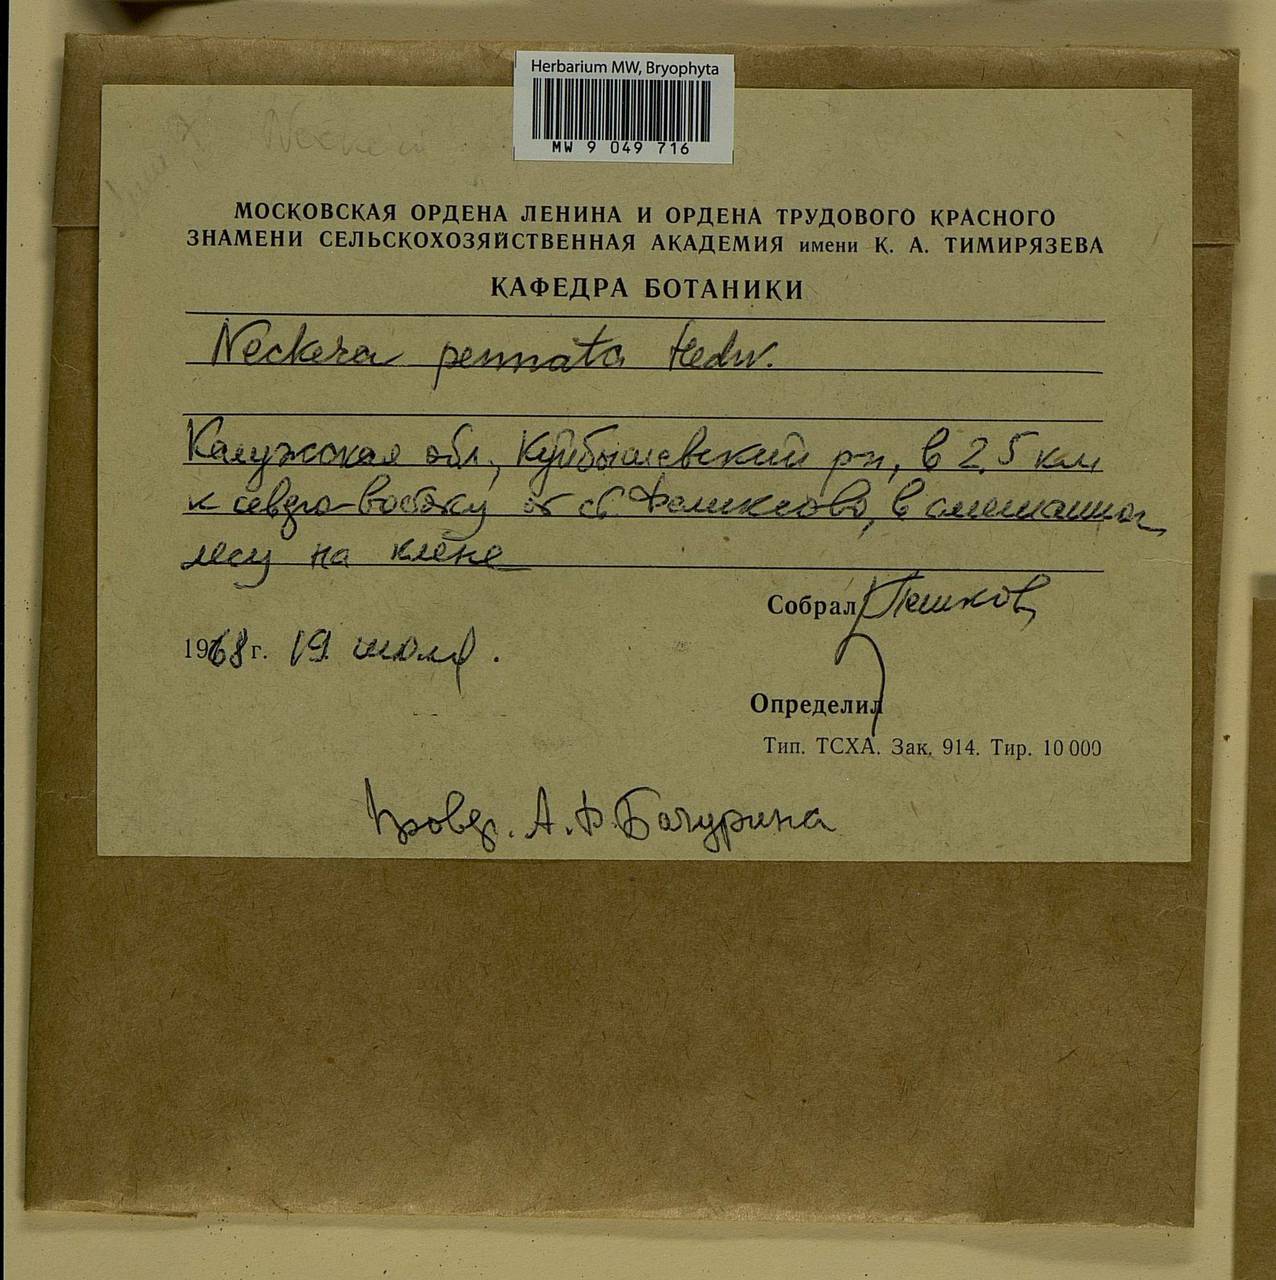 Herbarium MW, Bryophyta
MW 9 049 716
Neckera
МОСКОВСКАЯ ОРДЕНА ЛЕНИНА И ОРДЕНА ТРУДОВОГО КРАСНОГО
ЗНАМЕНИ СЕЛЬСКОХОЗЯЙСТВЕННАЯ АКАДЕМИЯ имени К. А. ТИМИРЯЗЕВА
КАФЕДРА БОТАНИКИ
Neckera pennata Hedw.
Калужская обл., Куйбышевский р-н, в 2,5 км
к северо-востоку от с. Феликсово, в смешанном
лесу на клене
Собрал Пешков
1968 г. 19 июля.
Определил
Тип. ТСХА. Зак. 914. Тир. 10 000
Провер. А.Ф. Бачурина